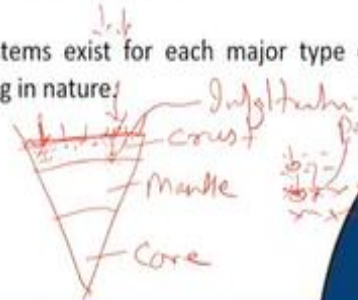 stems exist for each major type
g in nature.
Infiltration
crust
Mantle
Core